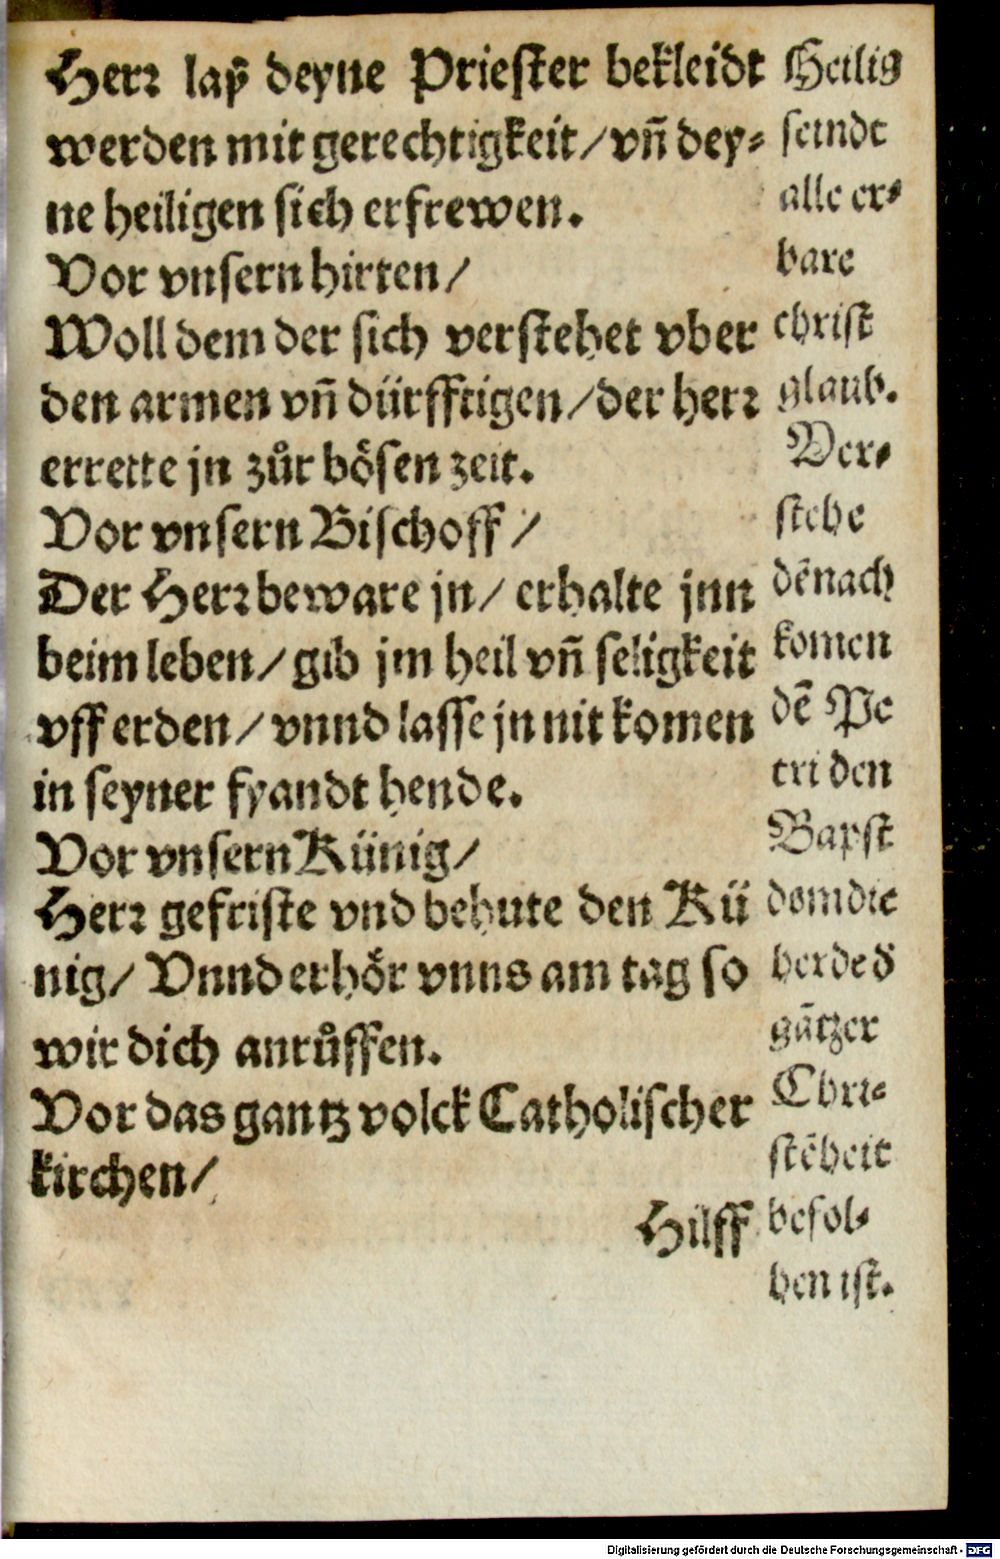 Herr laß deyne Priester bekleidt
werden mit gerechtigkeit/ vñ dey⸗
ne heiligen sich erfrewen.
Vor vnsern hirten/
Woll dem der sich verstehet vber
den armen vñ dürfftigen/ der herr
errette jn zůr bösen zeit.
Vor vnsern Bischoff/
Der Herr beware jn/ erhalte jnn
beim leben/ gib jm heil vñ seligkeit
vff erden/ vnnd lasse jn nit komen
in seyner fyandt hende.
Vor vnsern Künig/
Herr gefriste vnd behute den Kü
nig/ Vnnd erhör vnns am tag so
wir dich anrůffen.
Vor das gantz volck Catholischer
kirchen/
Hilff
Heilig
seindt
alle er⸗
bare
christ
glaub.
Ver⸗
stehe
dēnach
komen
dē Pe
tri den
Bapst
dom die
herde d̕
gātzer
Chri⸗
stēheit
befol⸗
hen ist.
Digitalisierung gefördert durch die Deutsche Forschungsgemeinschaft - DFG